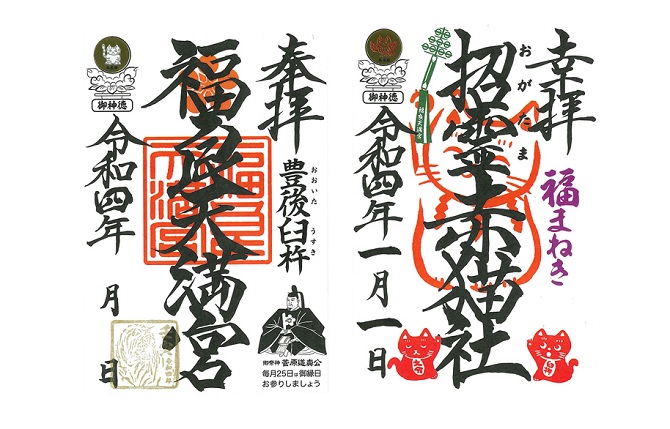 奉拝
豊後臼杵
おおいた うすき
福良天満宮
令和四年 月 日
御神徳
御祭神 菅原道真公
毎月25日は御縁日
お参りしましょう
幸拝
福まねき
招霊赤猫社
おがたま
令和四年一月一日
御神徳
福良天満宮